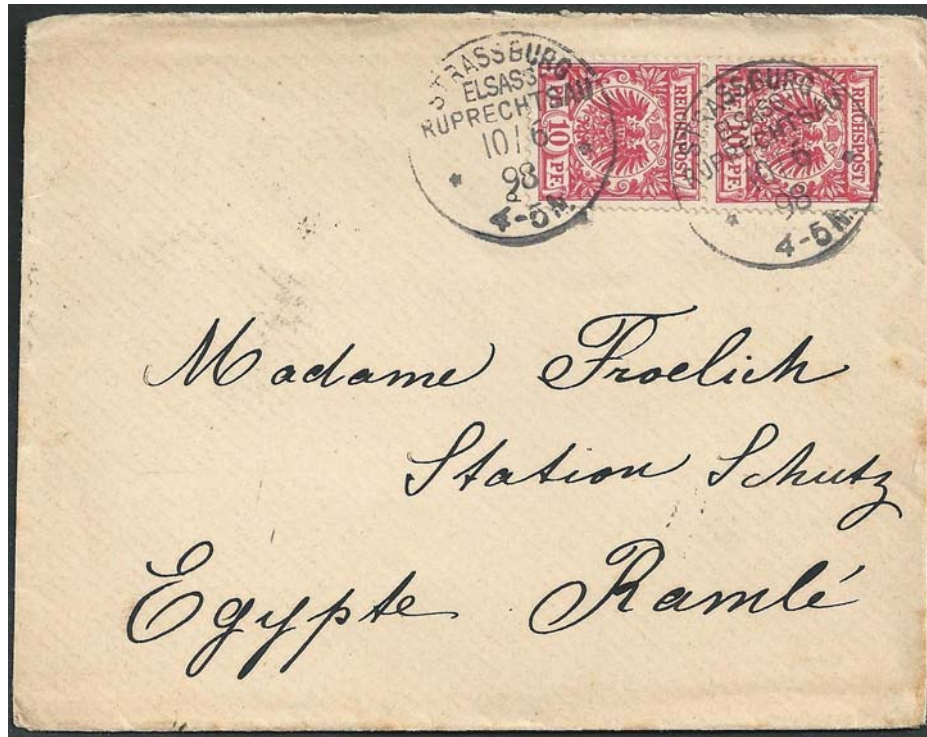 STRASSBURG
ELSASS
RUPRECHTSAU
10/6
98
4-5N.
REICHSPOST
10 PF.
STRASSBURG
ELSASS
RUPRECHTSAU
10/6
98
4-5N.
REICHSPOST
10 PF.
Madame Froelich
Station Schutz
Egypte Ramlé